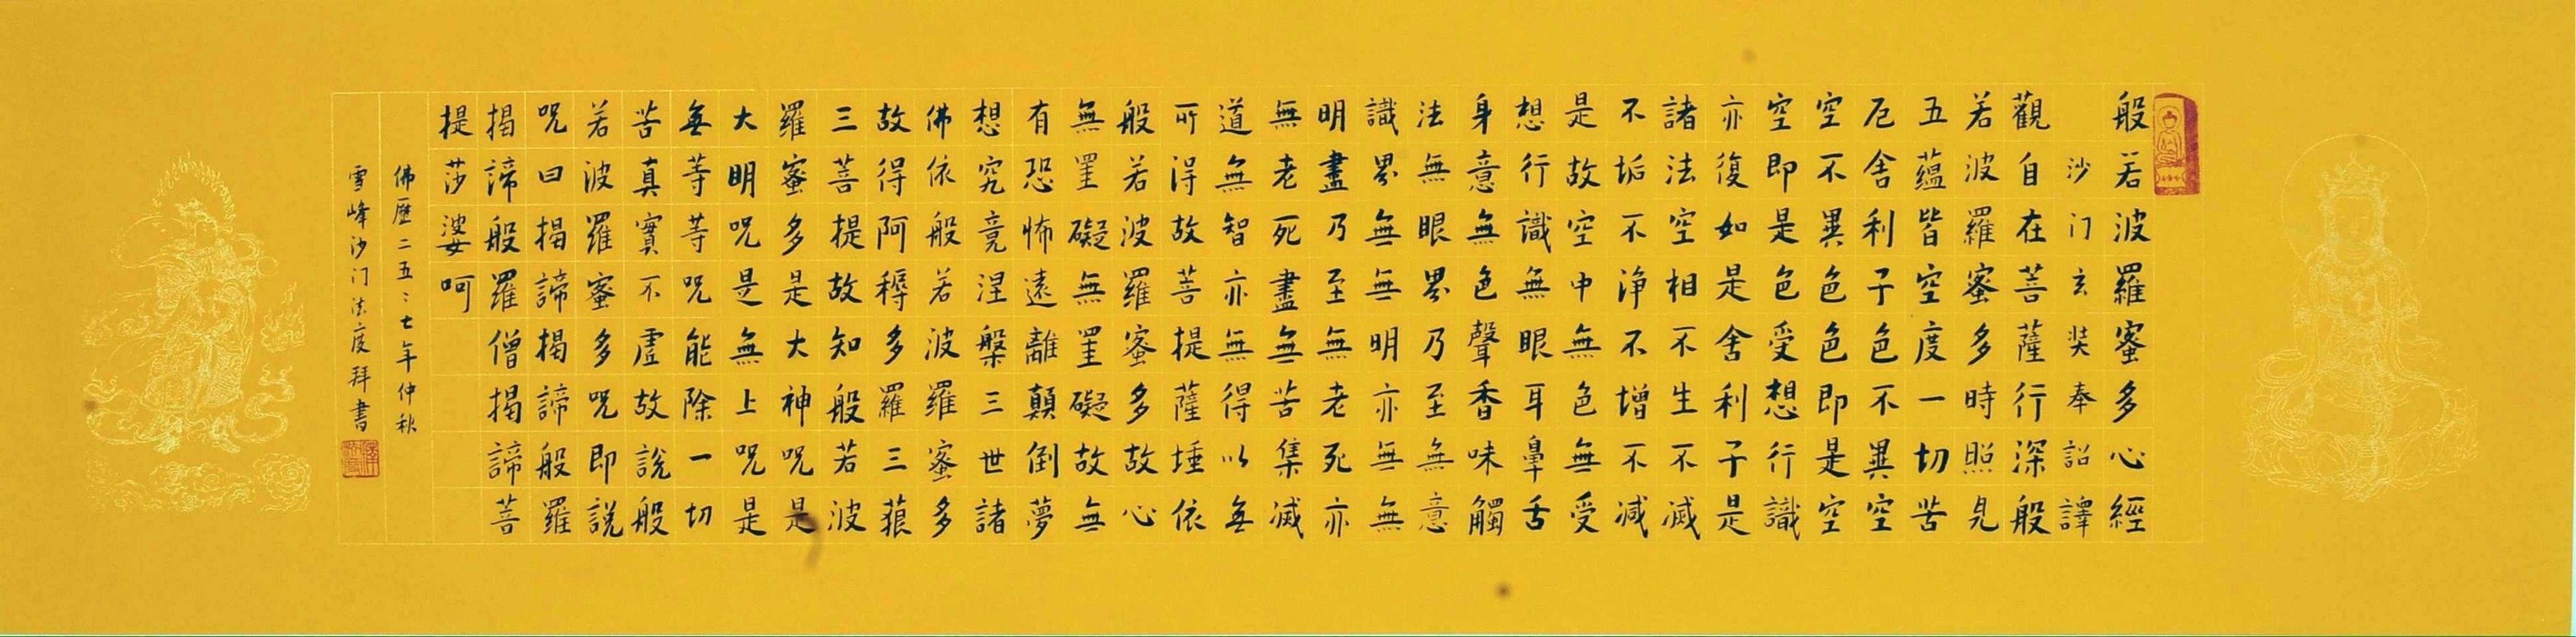 般若波羅蜜多心經
沙门玄奘奉詔譯
觀自在菩薩行深般
若波羅蜜多時照見
五蘊皆空度一切苦
厄舍利子色不異空
空不異色色即是空
空即是色受想行識
亦復如是舍利子是
諸法空相不生不滅
不垢不淨不增不減
是故空中無色無受
想行識無眼耳鼻舌
身意無色聲香味觸
法無眼界乃至無意
識界無無明亦無無
明盡乃至無老死亦
無老死盡無苦集滅
道無智亦無得以無
所得故菩提薩埵依
般若波羅蜜多故心
無罣礙無罣礙故無
有恐怖遠離顛倒夢
想究竟涅槃三世諸
佛依般若波羅蜜多
故得阿耨多羅三藐
三菩提故知般若波
羅蜜多是大神咒是
大明咒是無上咒是
無等等咒能除一切
苦真實不虛故說般
若波羅蜜多咒即說
咒曰揭諦揭諦般羅
揭諦般羅僧揭諦菩
提莎婆呵
佛歷二五二七年仲秋
雪峰沙门法度拜書